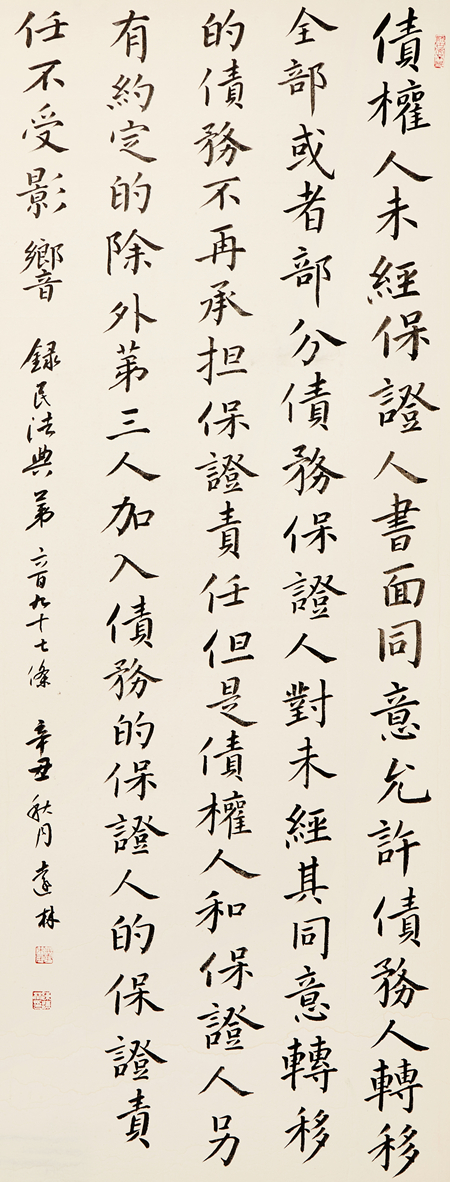 債權人未經保證人書面同意允許債務人轉移
全部或者部分債務保證人對未經其同意轉移
的債務不再承担保證責任但是債權人和保證人另
有約定的除外第三人加入債務的保證人的保證責
任不受影響 録民法典第六百九十七條 辛丑秋月遠林